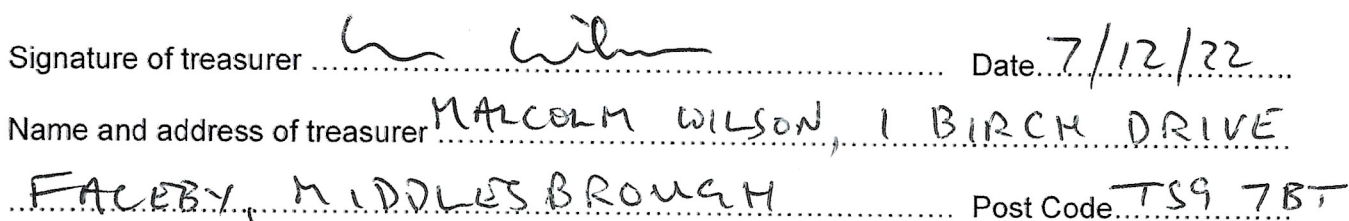 Signature of treasurer ........ Wilson ........ Date 7/12/22
Name and address of treasurer MALCOLM WILSON, 1 BIRCH DRIVE
FACEBY, MIDDLESBROUGH ........ Post Code TS9 7BT